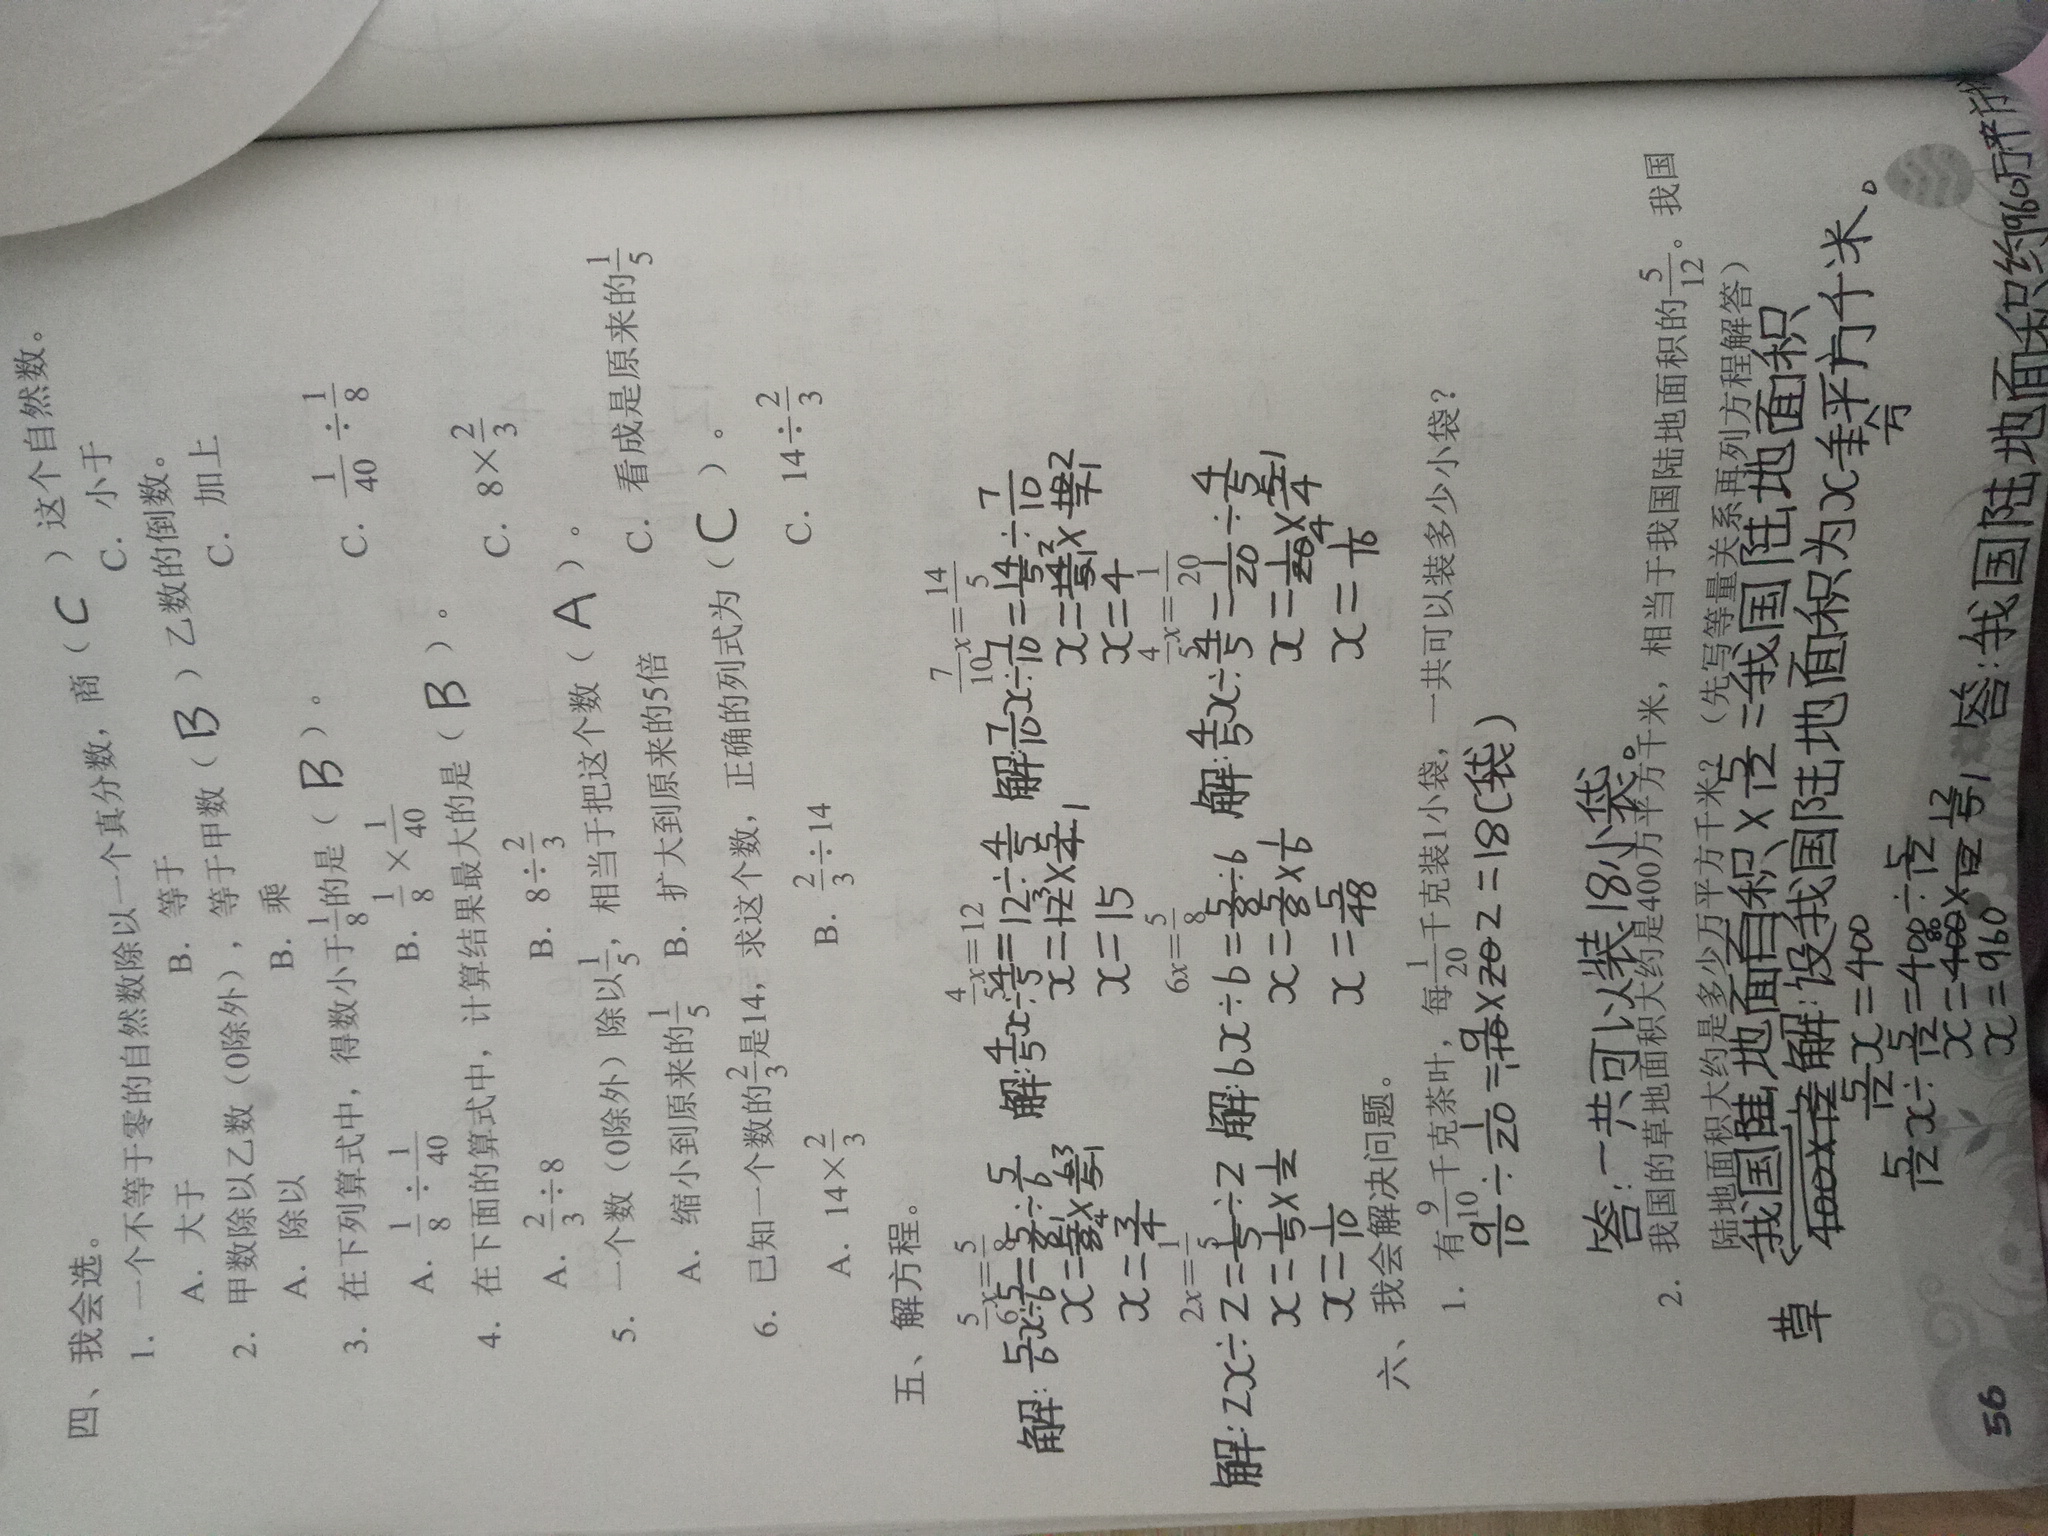 四、我会选。
1. 一个不等于零的自然数除以一个真分数，商（ C ）这个自然数。
A. 大于 B. 等于 C. 小于
2. 甲数除以乙数（0除外），等于甲数（ B ）乙数的倒数。
A. 除以 B. 乘 C. 加上
3. 在下列算式中，得数小于1/8的是（ B ）。
A. 1/8÷1/40 B. 1/8×1/40 C. 1/40÷1/8
4. 在下面的算式中，计算结果最大的是（ B ）。
A. 2/3÷8 B. 8÷2/3 C. 8×2/3
5. 一个数（0除外）除以1/5，相当于把这个数（ A ）。
A. 缩小到原来的1/5 B. 扩大到原来的5倍 C. 看成是原来的1/5
6. 已知一个数的2/3是14，求这个数，正确的列式为（ C ）。
A. 14×2/3 B. 2/3÷14 C. 14÷2/3
五、解方程。
5/6x=5/8 4/5x=12 7/10x=14/5
解：5/6x÷5/6=5/8÷5/6 解：4/5x÷4/5=12÷4/5 解：7/10x÷7/10=14/5÷7/10
x=5/8×6/5 x=12×5/4 x=14/5×10/7
x=3/4 x=15 x=4
2x=1/5 6x=5/8 4/5x=1/20
解：2x÷2=1/5÷2 解：6x÷6=5/8÷6 解：4/5x÷4/5=1/20÷4/5
x=1/5×1/2 x=5/8×1/6 x=1/20×5/4
x=1/10 x=5/48 x=1/16
六、我会解决问题。
1. 有9/10千克茶叶，每1/20千克装1小袋，一共可以装多少小袋？
9/10÷1/20=9/10×20 2=18(袋)
答：一共可以装18小袋。
2. 我国的草地面积大约是400万平方千米，相当于我国陆地面积的5/12。我国
陆地面积大约是多少万平方千米？（先写等量关系再列方程解答）
草 我国陆地面积×5/12=我国陆地面积
解：设我国陆地面积为x万平方千米。
5/12x=400
5/12x÷5/12=400÷5/12
x=400×12/5
x=960 答：我国陆地面积约960万平
56